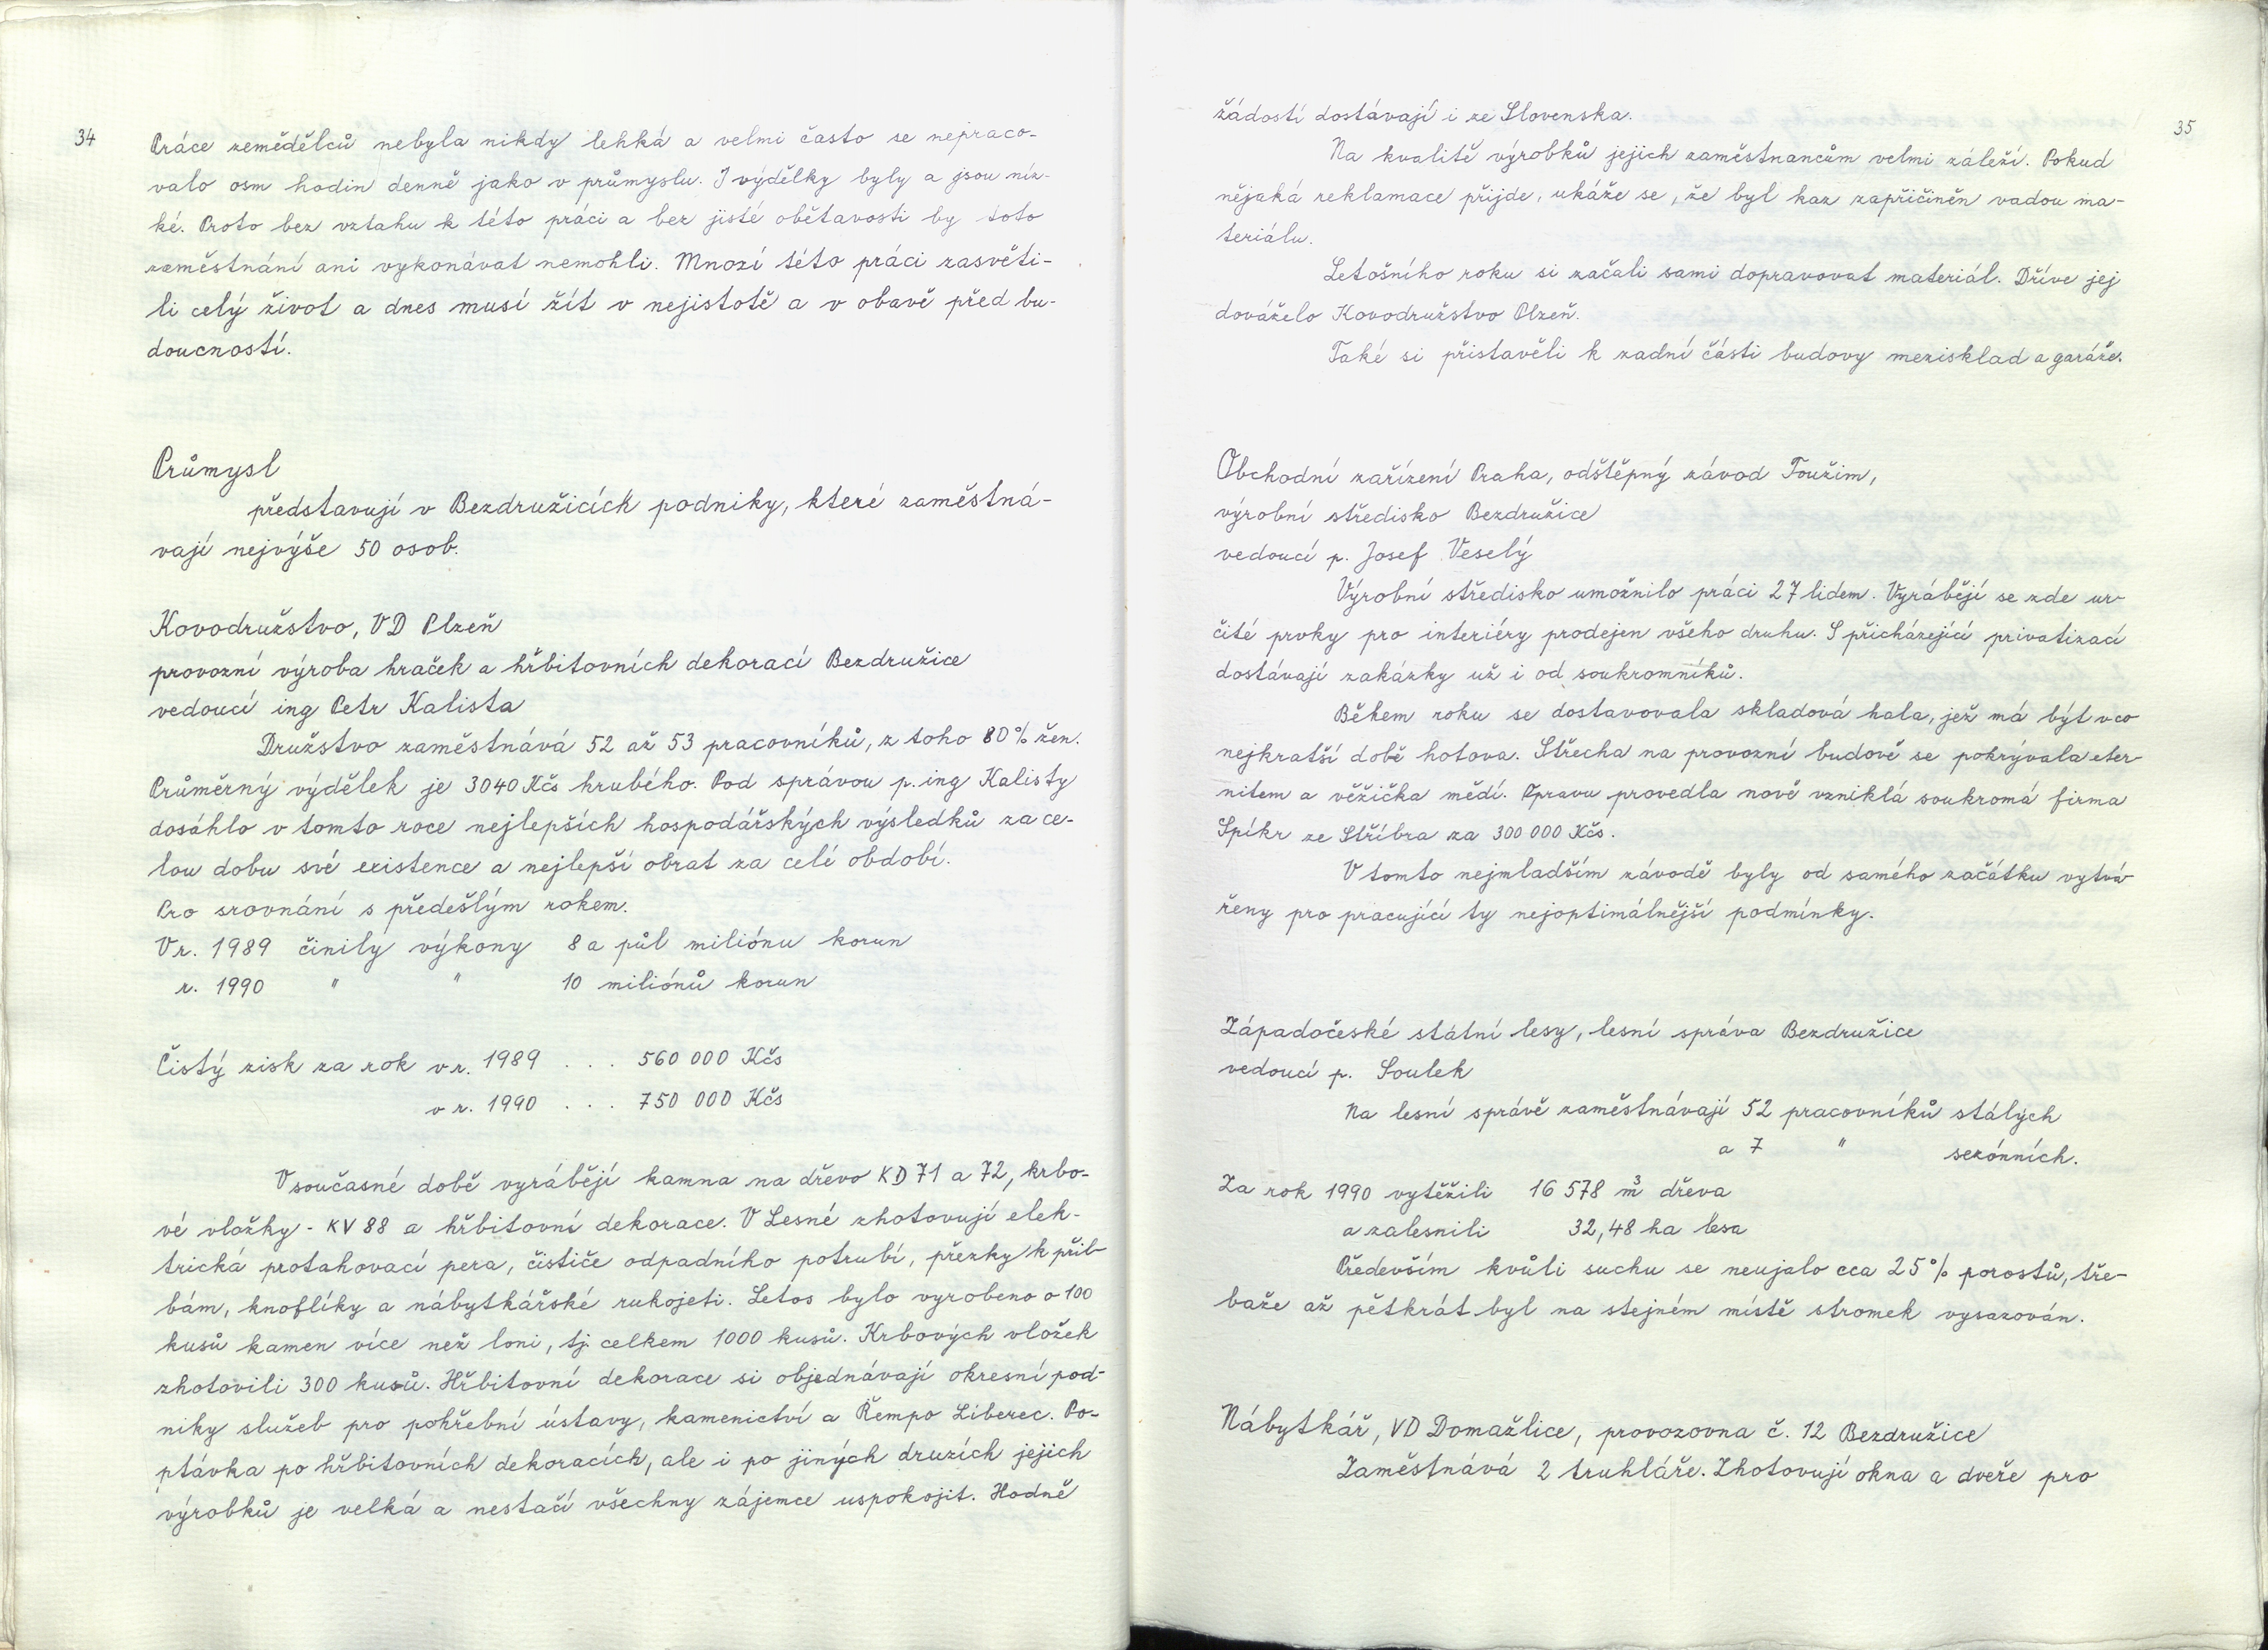 34
Práce zemědělců nebyla nikdy lehká a velmi často se nepraco-
valo osm hodin denně jako v průmyslu. I výdělky byly a jsou níz-
ké. Proto bez vztahu k této práci a bez jisté obětavosti by toto
zaměstnání ani vykonávat nemohli. Mnozí této práci zasvěti-
li celý život a dnes musí žít v nejistotě a v obavě před bu-
doucností.
Průmysl
představují v Bezdružicích podniky, které zaměstná-
vají nejvýše 50 osob.
Kovodružstvo, VD Plzeň
provozní výroba hraček a hřbitovních dekorací Bezdružice
vedoucí ing Petr Kalista
Družstvo zaměstnává 52 až 53 pracovníků, z toho 80% žen.
Průměrný výdělek je 3040 Kčs hrubého. Pod správou p. ing Kalisty
dosáhlo v tomto roce nejlepších hospodářských výsledků za ce-
lou dobu své existence a nejlepší obrat za celé období.
Pro srovnání s předešlým rokem.
V r. 1989 činily výkony 8 a půl miliónu korun
r. 1990 " " 10 miliónů korun
Čistý zisk za rok v r. 1989 . . . 560 000 Kčs
v r. 1990 . . . 750 000 Kčs
V současné době vyrábějí kamna na dřevo KD 71 a 72, krbo-
vé vložky - KV 88 a hřbitovní dekorace. V Lesné zhotovují elek-
trická protahovací pera, čističe odpadního potrubí, přezky k přil-
bám, knoflíky a nábytkářské rukojeti. Letos bylo vyrobeno o 100
kusů kamen více než loni, tj. celkem 1000 kusů. Krbových vložek
zhotovili 300 kusů. Hřbitovní dekorace si objednávají okresní pod-
niky služeb pro pohřební ústavy, kamenictví a Řempo Liberec. Po-
ptávka po hřbitovních dekoracích, ale i po jiných druzích jejich
výrobků je velká a nestačí všechny zájemce uspokojit. Hodně
35
žádostí dostávají i ze Slovenska.
Na kvalitě výrobků jejich zaměstnancům velmi záleží. Pokud
nějaká reklamace přijde, ukáže se, že byl kaz zapříčiněn vadou ma-
teriálu.
Letošního roku si začali sami dopravovat materiál. Dříve jej
dováželo Kovodružstvo Plzeň.
Také si přistavěli k zadní části budovy mezisklad a garáže.
Obchodní zařízení Praha, odštěpný závod Toužim,
výrobní středisko Bezdružice
vedoucí p. Josef Veselý
Výrobní středisko umožnilo práci 27 lidem. Vyrábějí se zde ur-
čité prvky pro interiéry prodejen všeho druhu. S přicházející privatizací
dostávají zakázky už i od soukromníků.
Během roku se dostavovala skladová hala, jež má být v co
nejkratší době hotova. Střecha na provozní budově se pokrývala eter-
nitem a věžička mědí. Opravu provedla nově vzniklá soukromá firma
Spíkr ze Stříbra za 300 000 Kčs.
V tomto nejmladším závodě byly od samého začátku vytvo-
řeny pro pracující ty nejoptimálnější podmínky.
Západočeské státní lesy, lesní správa Bezdružice
vedoucí p. Soulek
Na lesní správě zaměstnávají 52 pracovníků stálých
a 7 " sezónních.
Za rok 1990 vytěžili 16 578 m³ dřeva
a zalesnili 32,48 ha lesa
Především kvůli suchu se neujalo cca 25% porostů, tře-
baže až pětkrát byl na stejném místě stromek vysazován.
Nábytkář, VD Domažlice, provozovna č. 12 Bezdružice
Zaměstnává 2 truhláře. Zhotovují okna a dveře pro